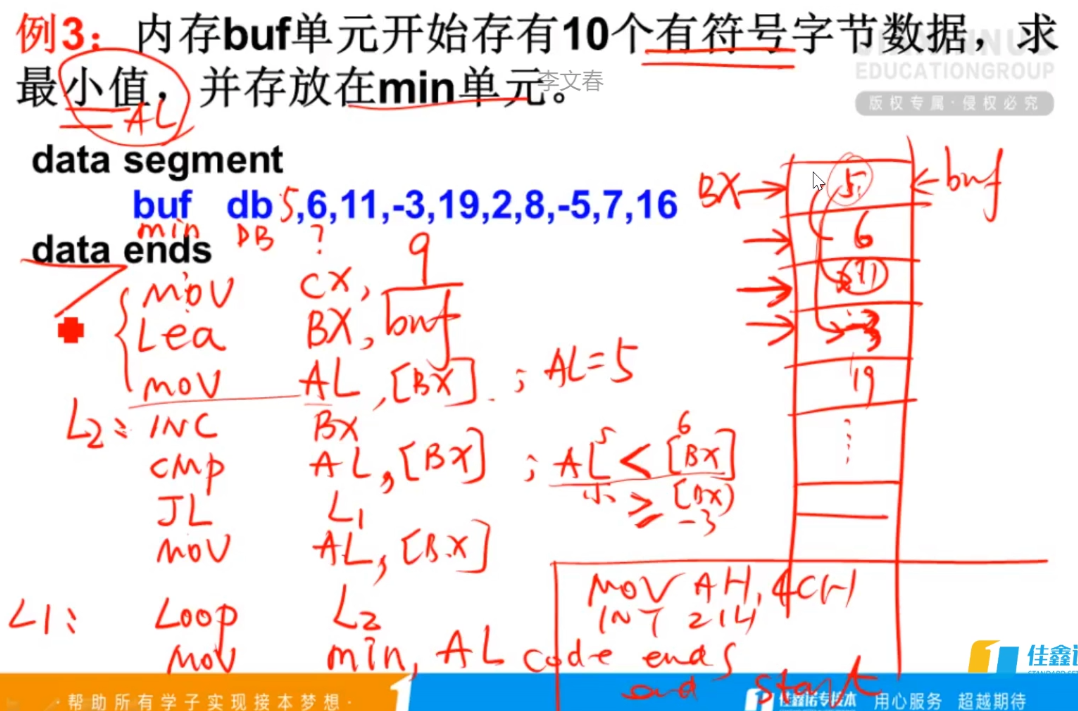 例3：内存buf单元开始存有10个有符号字节数据，求
最小值，并存放在min单元。
李文春
EDUCATIONGROUP
版权专属·侵权必究
AL
data segment
buf db 5,6,11,-3,19,2,8,-5,7,16
min DB ?
data ends
MOV CX, 9
Lea BX, buf
MOV AL, [BX] ; AL=5
L2: INC BX
CMP AL, [BX] ; AL < [BX]
5 6
小 ≥ [BX]
-3
JL L1
MOV AL, [BX]
L1: Loop L2
MOV min, AL
BX→ 5 ←buf
6
11
-3
19
MOV AH, 4CH
INT 21H
code ends
end start
帮助所有学子实现接本梦想·
佳鑫诺专接本 用心服务 超越期待
佳鑫